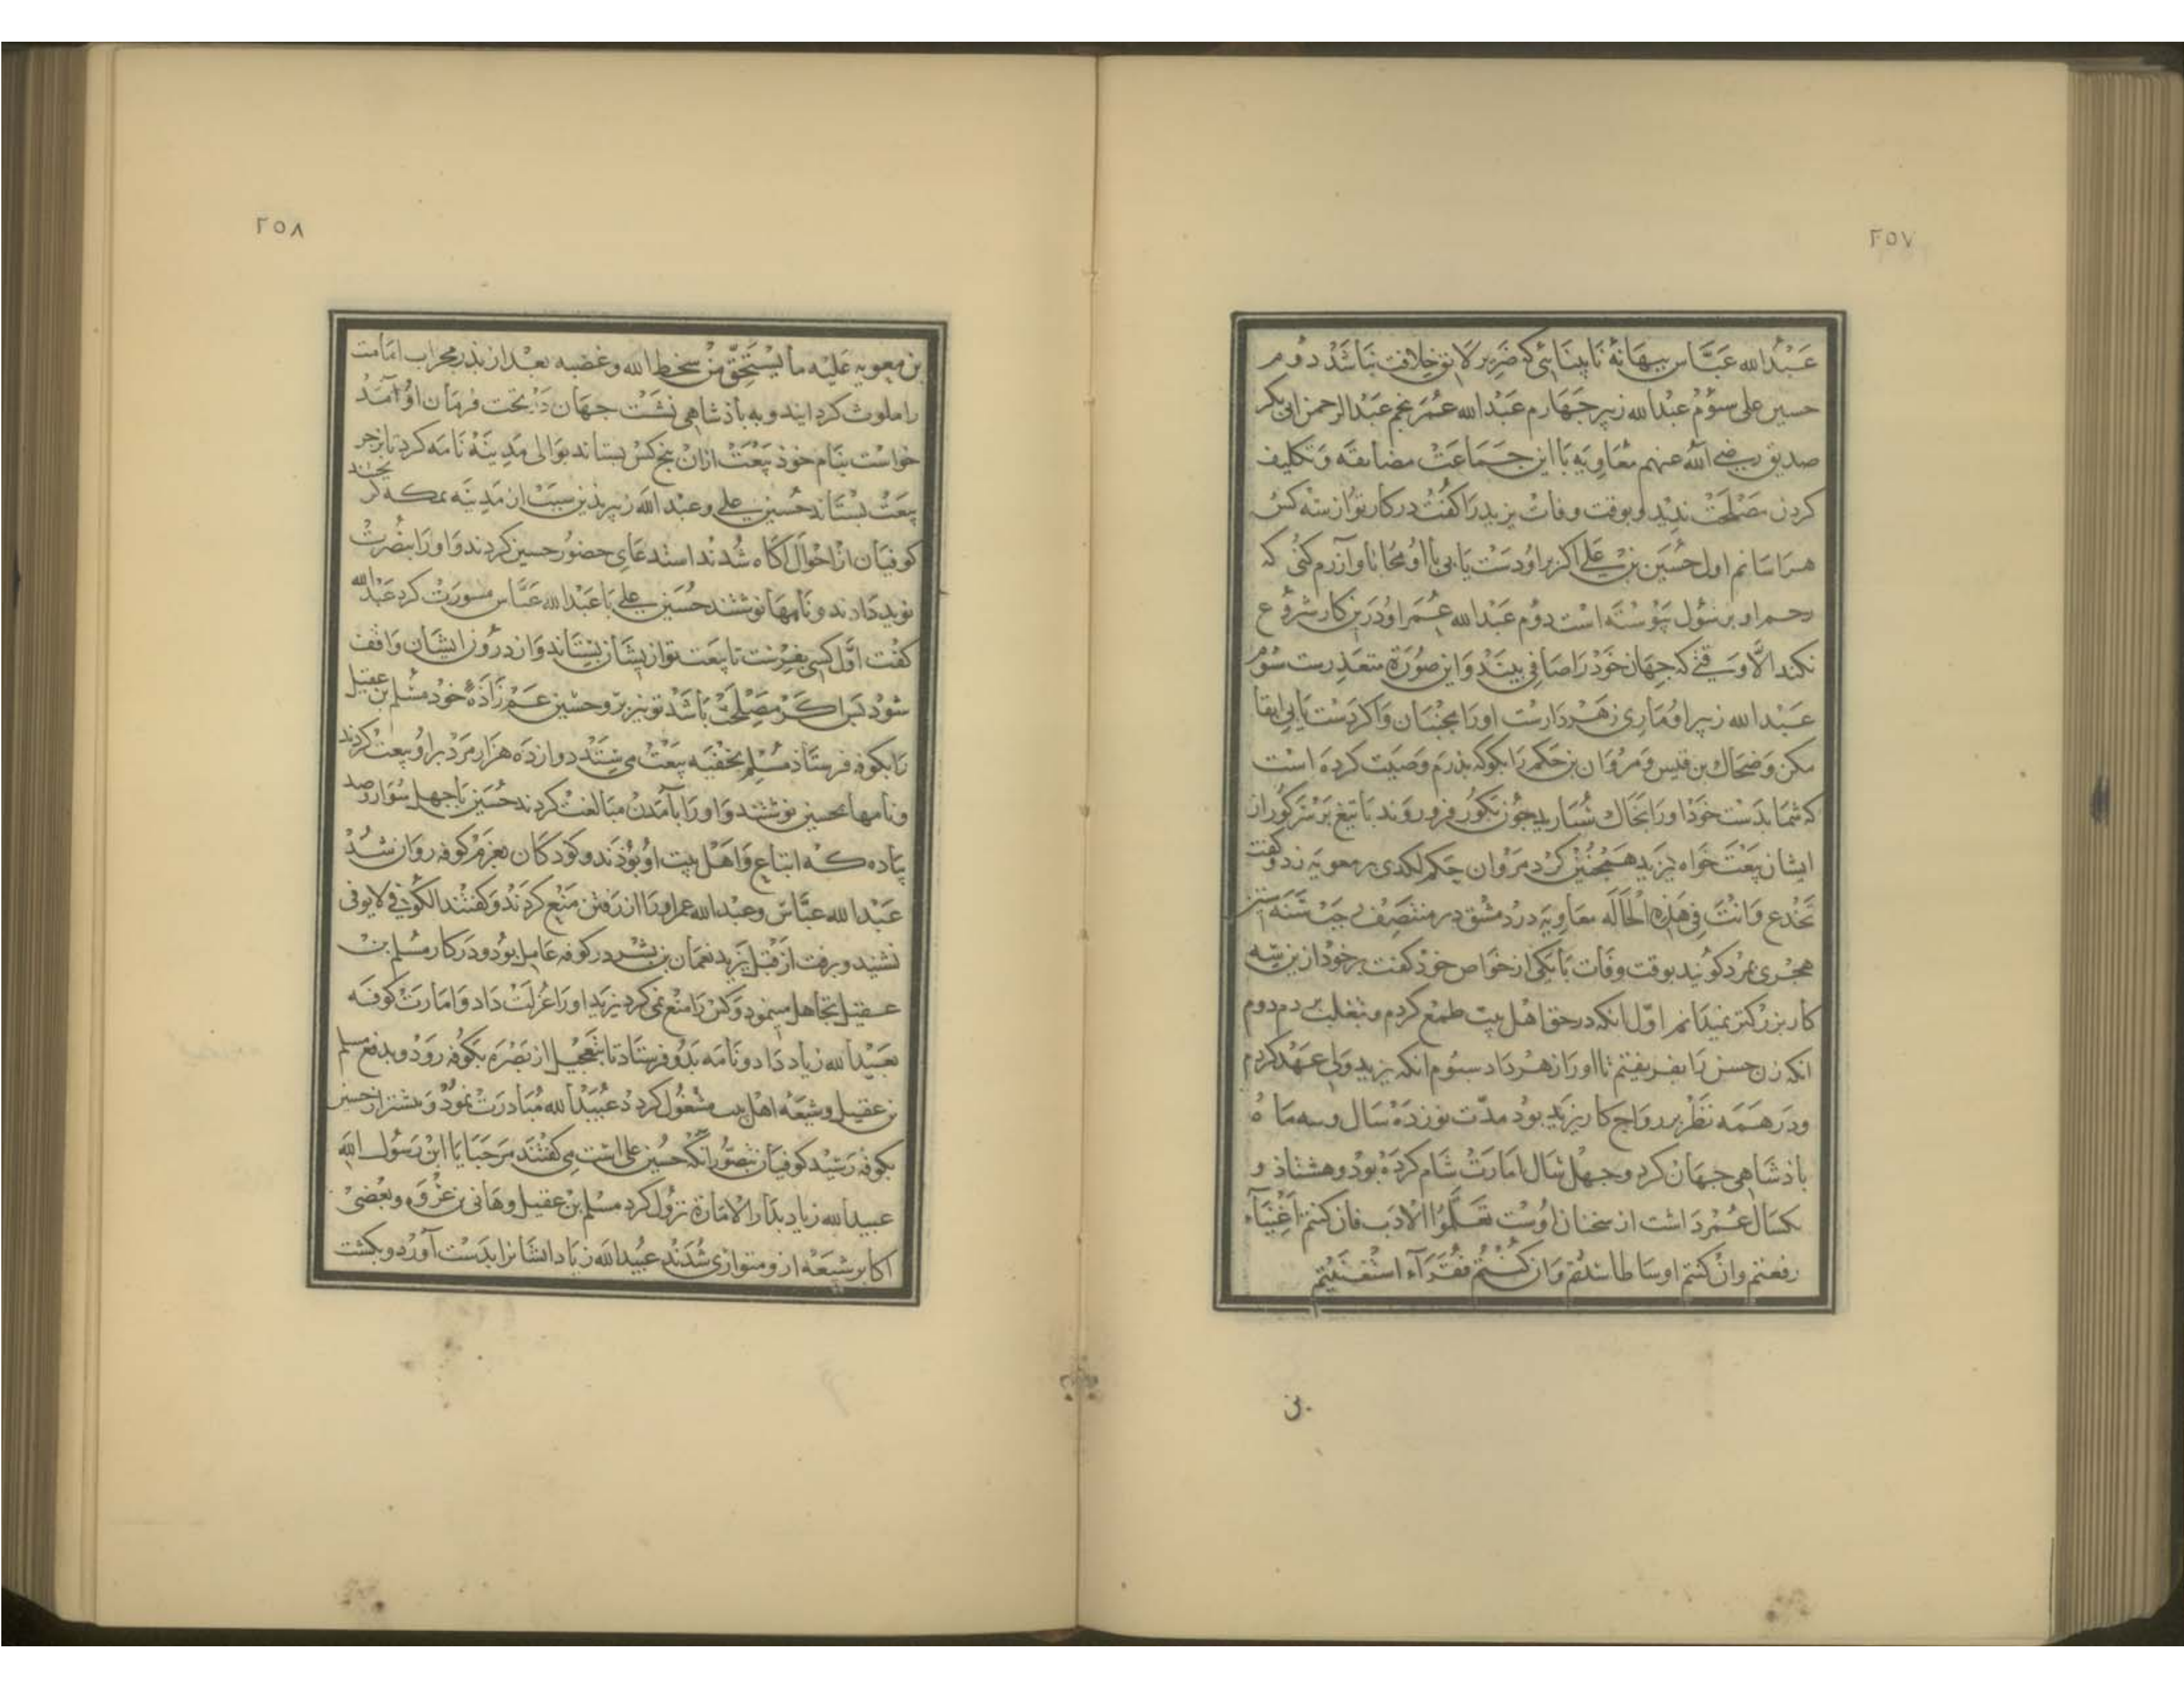 ٢٥٧
عبدالله عباس ببهانهٔ نابینائی که ضریر لایق خلافت نباشد دوم
حسین علی سوم عبدالله زبیر چهارم عبدالله عمر پنجم عبدالرحمن ابی بکر
صدیق رضی الله عنهم معاویه با این جماعت مضایقه و تکلیف
کردن مصلحت ندید و بوقت وفات یزید را کفت در کار تو از سه کس
هراسانم اول حسین بن علی اکر براو دست یابی با او محابا و آزرم کنی که
رحم او برسول پیوسته است دوم عبدالله عمر او درین کار شروع
نکند الا وقتی که جهان خود را صافی بیند و این صورة متعذرست سوم
عبدالله زبیر او ماری زهردارست اورا مجنبان و اکر دست یابی ابقا
مکن و ضحاک بن قیس و مروان بن حکم را بکو که پدرم وصیت کرده است
که شما بدست خود اورا بخاک سپارید چون بکور فرو روند با تیغ بر سر کور از
ایشان بیعت خواه یزید همچنین کرد مروان حکم لکدی بر معویه زد و کفت
تخدع وانت فی هذه الحاله معاویه در دمشق در منتصف رجب سنه ستین
هجری بمرد کویند بوقت وفات با یکی از خواص خود کفت بر خود ازین سه
کار بزرکتر نمیدانم اول انکه در حق اهل بیت طمع کردم و بتغلب دوم
انکه زن حسن را بفریفتم تا اورا زهر داد سیوم انکه یزید ولی عهد کردم
ودر همه نظر بر رواج کار یزید بود مدت نوزده سال و سه ماه
باذشاهی جهان کرد وچهل سال امارت شام کرده بود وهشتاذ و
یکسال عمر داشت از سخنان اوست تعلموا الادب فان کنتم اغنیآء
رفعتم وان کنتم اوساطا سدتم وان کنتم فقرآء استغنیتم
بن
٢٥٨
بن معویه علیه ما یستحق من سخط الله وغضبه بعد از پذر محراب امامت
را ملوث کردانید و به باذشاهی نشست جهان در تحت فرمان او آمد
خواست بنام خوذ بیعت ازان پنج کس بستاند بوالی مدینه نامه کرد تا بزجر
بیعت بستاند حسین علی و عبدالله زبیر بذین سبب از مدینه بمکه
کوفیان از احوال آکاه شدند استدعای حضور حسین کردند و اورا بنصرت
نوید دادند و نامها نوشتند حسین علی با عبدالله عباس مشورت کرد عبدالله
کفت اول کسی بفرست تا بیعت تو از یشان بستاند و از درون ایشان واقف
شود پس اکر مصلحت باشد تو نیز برو حسین عم زاذهٔ خود مسلم بن عقیل
را بکوفه فرستاذ مسلم بخفیه بیعت می ستند دوازده هزار مرد براو بیعت کردند
و نامها بحسین نوشتند و اورا بآمدن مبالغت کردند حسین با چهل سوار و صد
پیاده که اتباع و اهل بیت او بوذند و کودکان بعزم کوفه روان شد
عبدالله عباس وعبدالله عمر اورا از رفتن منع کردند و کفتند الکوفی لا یوفی
نشنید و برفت از قبل یزید نعمان بن بشیر در کوفه عامل بود ودر کار مسلم بن
عقیل تجاهل مینمود و کس را منع نمی کرد یزید اورا عزلت داد و امارت کوفه
بعبیدالله زیاد داد و نامه بدو فرستاد تا بتعجیل از بصره بکوفه رود و بدفع مسلم
بن عقیل و شیعه اهل بیت مشغول کردد عبیدالله مبادرت نمود و پیشتر از حسین
بکوفه رسید کوفیان بتصور آنکه حسین علی است می کفتند مرحبا یا ابن رسول الله
عبیدالله زیاد بدار الاماره نزول کرد مسلم بن عقیل وهانی بن عروه و بعضی
اکابر شیعه ازو متواری شدند عبیدالله زیاد ایشانرا بدست آورد و بکشت